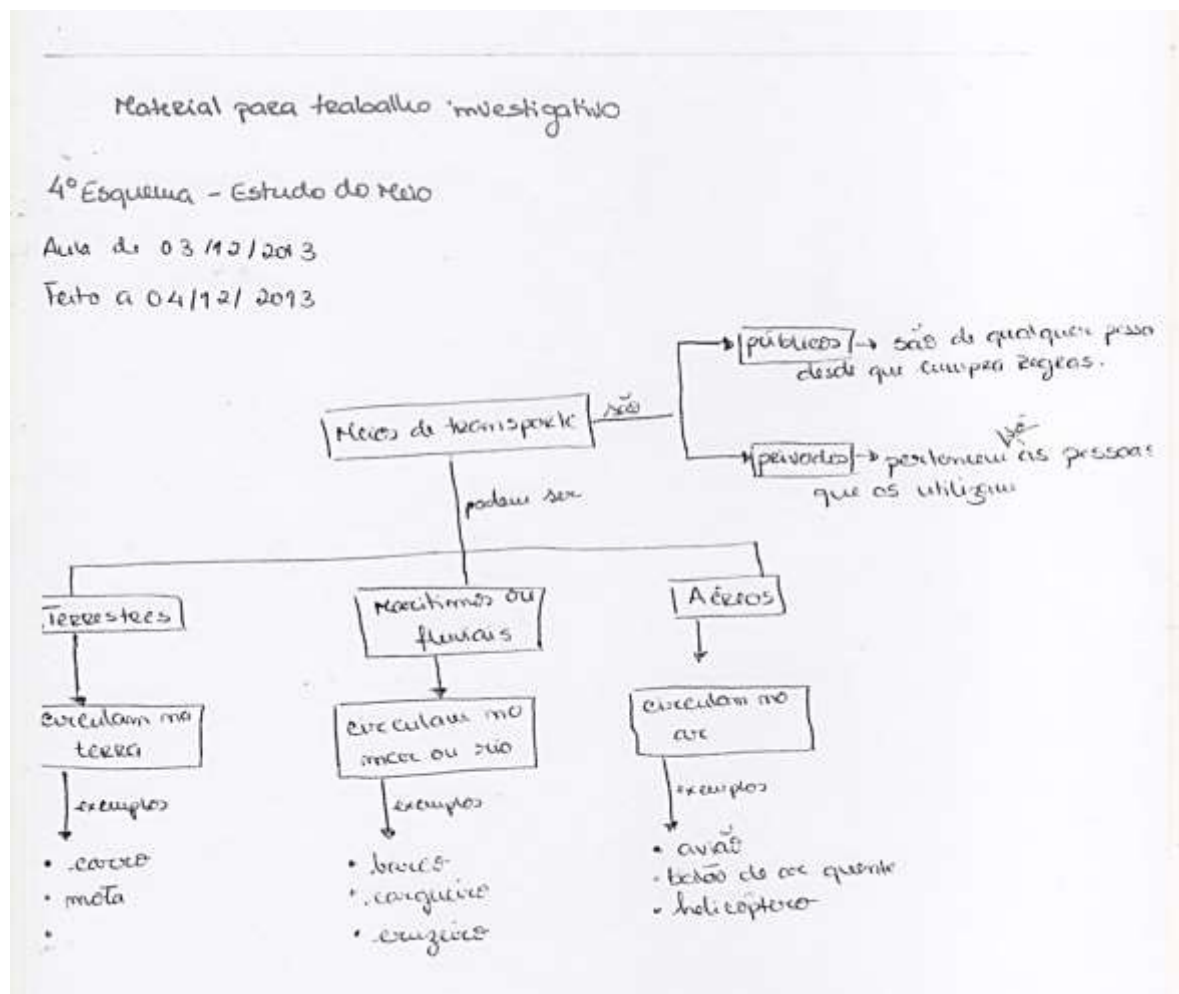 Material para trabalho investigativo
4º Esquema - Estudo do Meio
Aula de 03/12/2013
Feito a 04/12/2013
públicos → são de qualquer pesso
desde que cumpra regras.
Meios de transporte
são
só
privados → pertencem às pessoas
que os utilizam
podem ser
Terrestres
Marítimos ou
fluviais
Aéreos
circulam na
terra
circulam no
mar ou rio
circulam no
ar
exemplos
exemplos
exemplos
• carro
• mota
•
• barco
• cargueiro
• cruzeiro
• avião
• balão de ar quente
• helicóptero